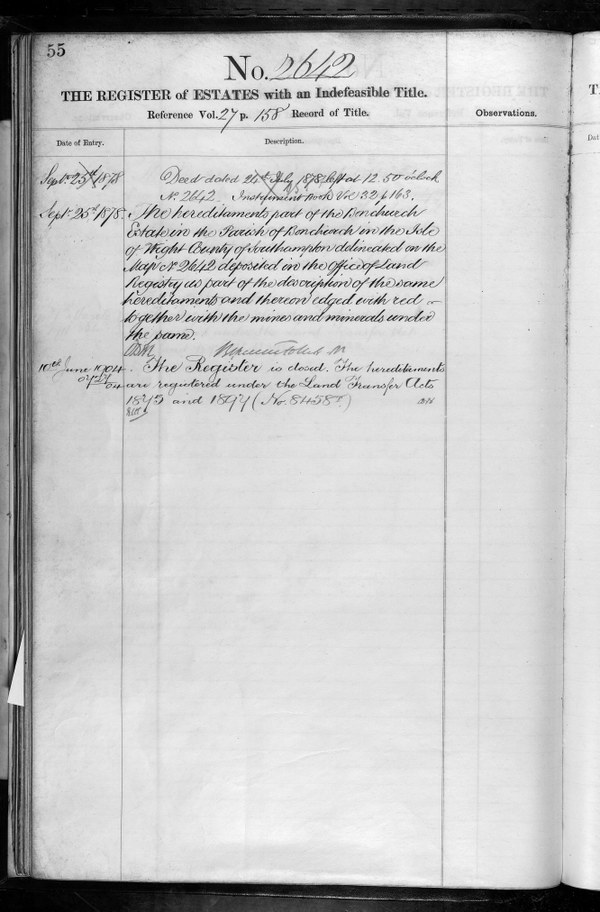 55
No. 2642
THE REGISTER of ESTATES with an Indefeasible Title.
Reference Vol. 27 p. 158 Record of Title.
Observations.
Date of Entry.
Description.
Sept. 25th 1878
Deed dated 24th July 1878 left at 12.50 o'clock
No. 2642 Instrument Book Vol 32 p 163.
Sept. 25th 1878.
The hereditaments part of the Bonchurch
Estate in the Parish of Bonchurch in the Isle
of Wight County of Southampton delineated on the
Map No. 2642 deposited in the Office of Land
Registry as part of the description of the same
hereditaments and thereon edged with red
together with the mines and minerals under
the same.
10th June 1904
The Register is closed. The hereditaments
are registered under the Land Transfer Acts
1875 and 1897 (No. 84587)